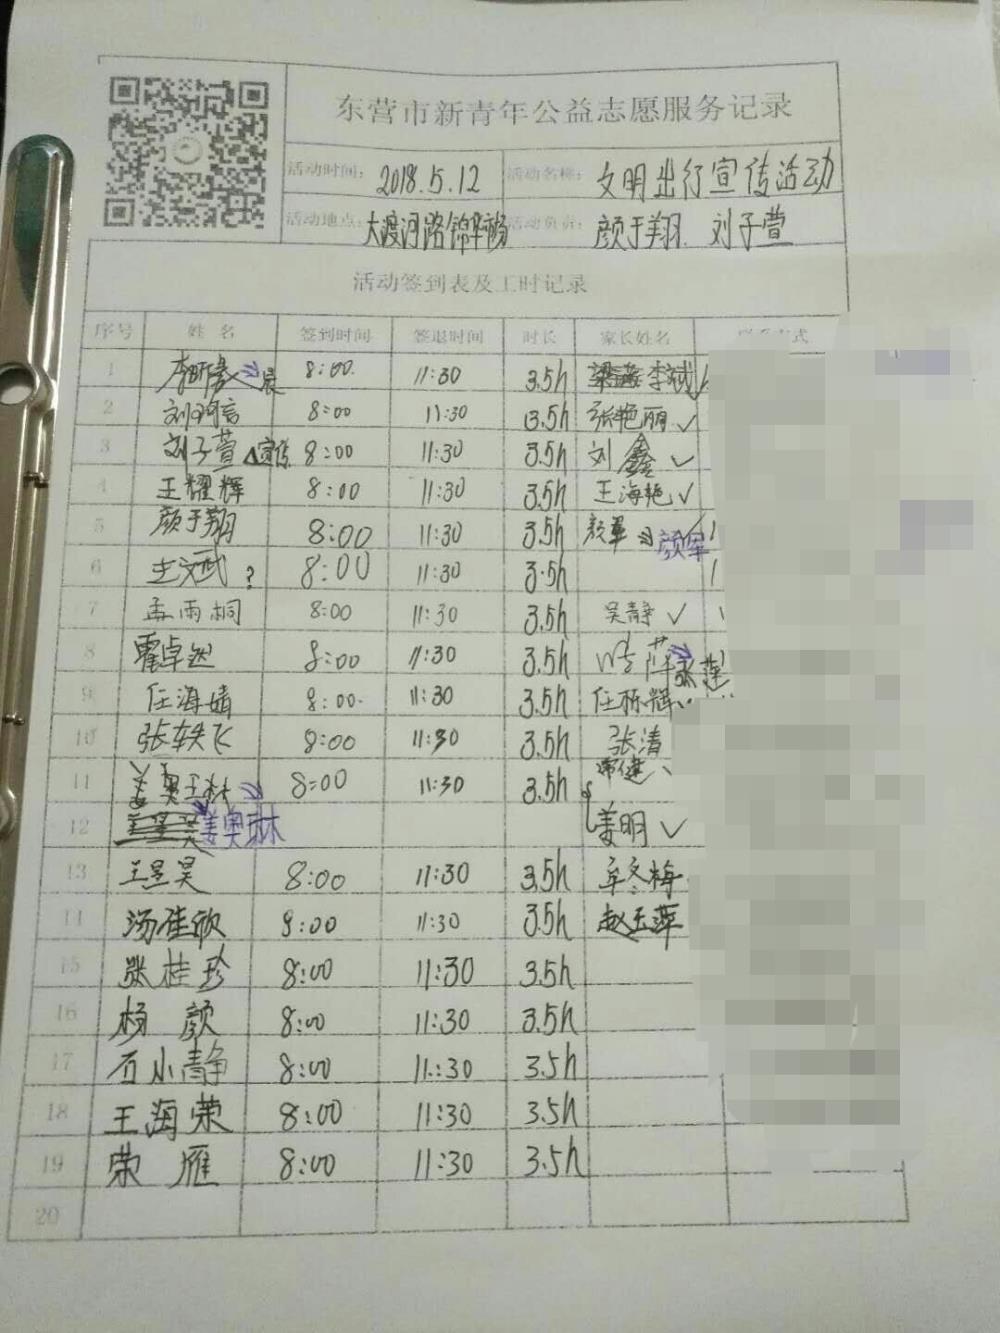 东营市新青年公益志愿服务记录
活动时间: 2018.5.12 活动名称: 文明出行宣传活动
活动地点: 大渡河路锦华 活动负责: 颜于翔 刘子萱
活动签到表及工时记录
序号 姓名 签到时间 签退时间 时长 家长姓名 式
1 李 晨 8:00 11:30 3.5h 李斌
2 刘 言 8:00 11:30 3.5h 张艳丽 ✓
3 刘子萱 △宣传 8:00 11:30 3.5h 刘鑫 ✓
4 王耀辉 8:00 11:30 3.5h 王海艳 ✓
5 颜于翔 8:00 11:30 3.5h 颜军 颜军
6 王文武 ? 8:00 11:30 3.5h
7 孟雨桐 8:00 11:30 3.5h 吴静 ✓
8 霍卓然 8:00 11:30 3.5h 萍 张莲
9 任海婧 8:00 11:30 3.5h 任栋辉
10 张轶飞 8:00 11:30 3.5h 张清
11 姜奥玉林 8:00 11:30 3.5h 常健
12 姜奥琳 姜明 ✓
13 王昱昊 8:00 11:30 3.5h 牟冬梅
14 汤佳欣 8:00 11:30 3.5h 赵玉萍
15 张桂珍 8:00 11:30 3.5h
16 杨颜 8:00 11:30 3.5h
17 石小静 8:00 11:30 3.5h
18 王海荣 8:00 11:30 3.5h
19 荣雁 8:00 11:30 3.5h
20